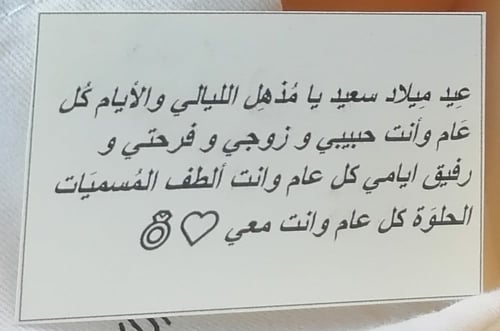 عِيد مِيلاد سعيد يا مُذهِل الليالي والأيام كُل
عَام وأنت حبيبي و زوجي و فرحتي و
رفيق ايامي كل عام وانت ألطف المُسميَات
الحلوَة كل عام وانت معي ♡💍